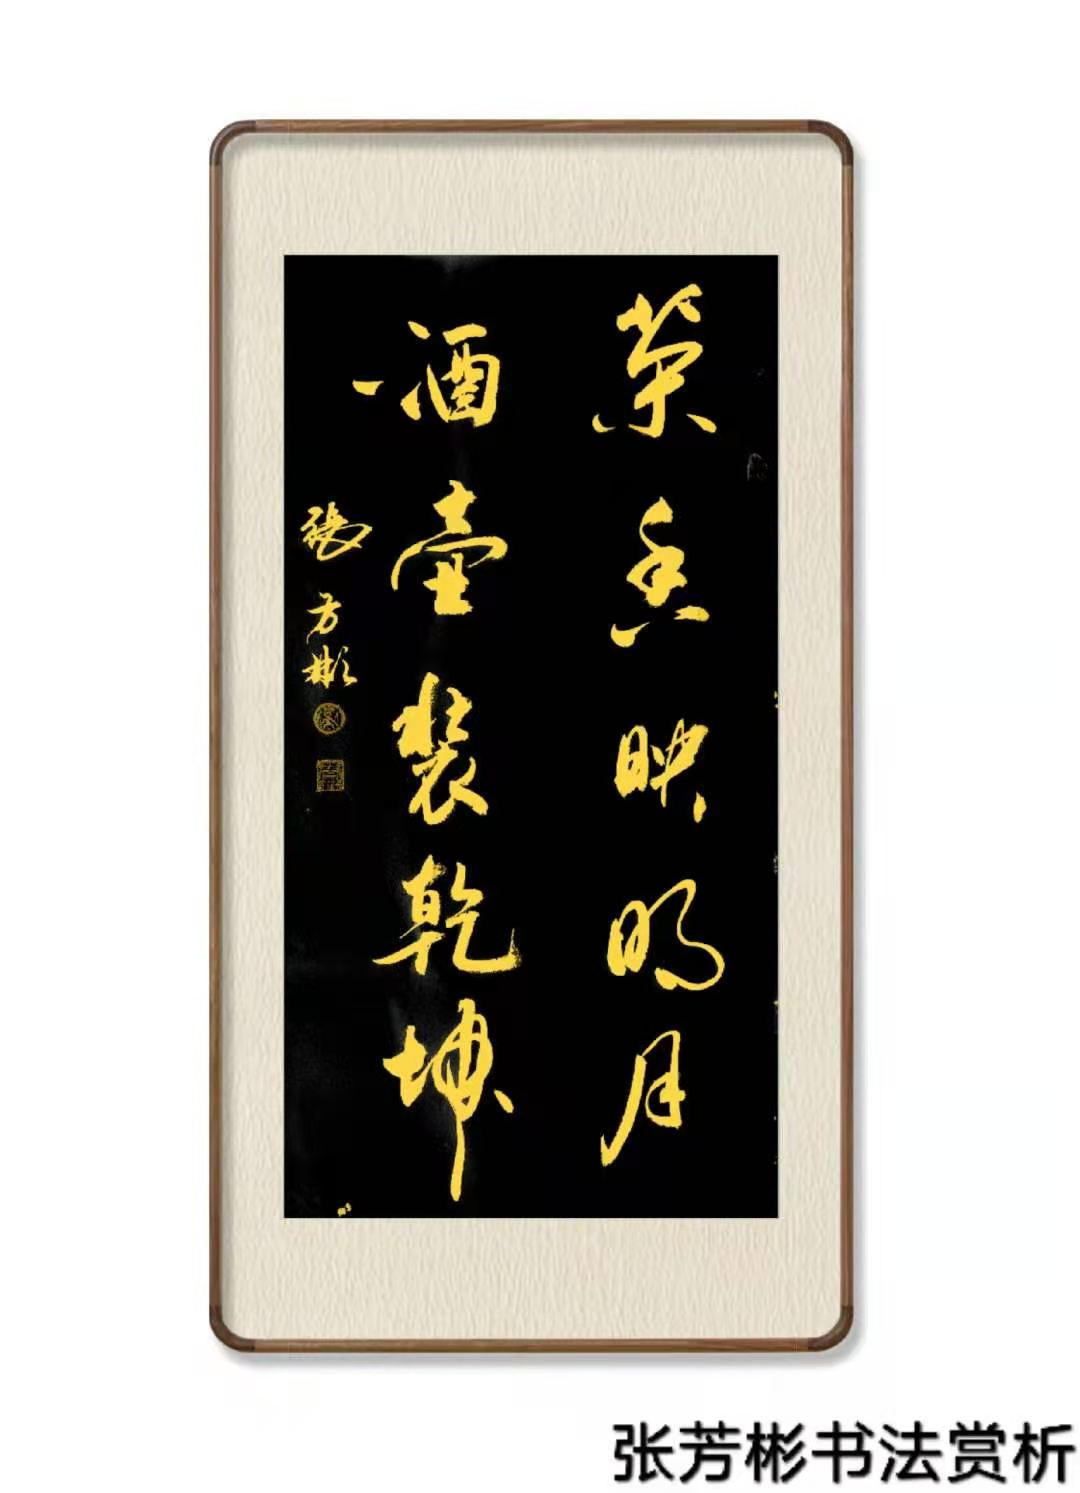 茶香映明月
酒壺裝乾坤
張芳彬
张芳彬书法赏析